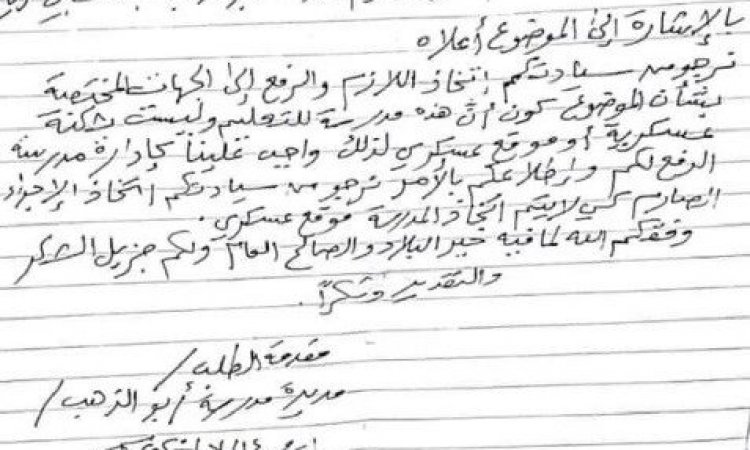 بالإشارة إلى الموضوع أعلاه
نرجو من سيادتكم إتخاذ اللازم والرفع إلى الجهات المختصة
بشأن الموضوع كون أن هذه مدرسة للتعليم وليست ثكنة
عسكرية أو موقع عسكري لذلك واجب علينا كإدارة مدرسة
الرفع لكم وإطلاعكم بالأمر نرجو من سيادتكم اتخاذ الإجراء
الصارم كي لا يتم اتخاذ المدرسة موقع عسكري.
وفقكم الله لما فيه خير البلاد والصالح العام ولكم جزيل الشكر
والتقدير وشكراً.
مقدمة الطلب/
مديرة مدرسة أبو الذهب/